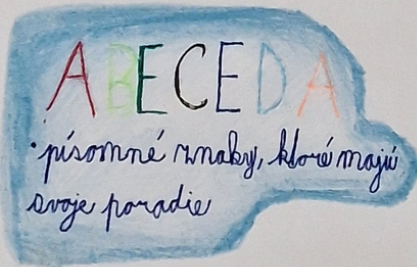 ABECEDA
• písomné znaky, ktoré majú
svoje poradie